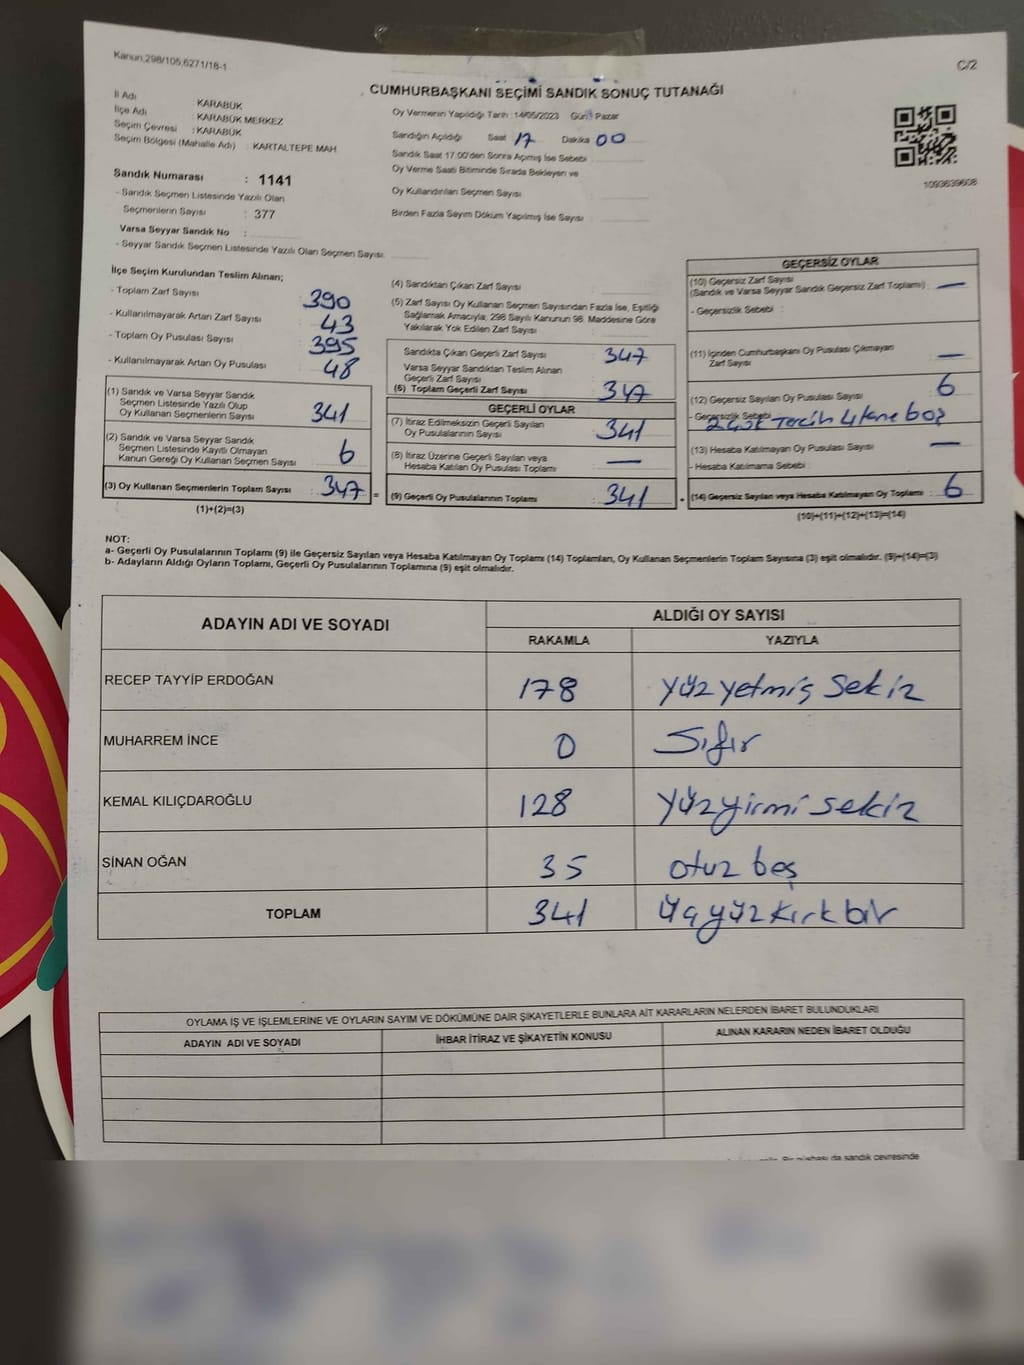 Kanun,298/105,6271/18-1
C/2
CUMHURBAŞKANI SEÇİMİ SANDIK SONUÇ TUTANAĞI
İl Adı KARABÜK
İlçe Adı KARABÜK MERKEZ
Seçim Çevresi : KARABÜK
Seçim Bölgesi (Mahalle Adı) : KARTALTEPE MAH.
Sandık Numarası : 1141
- Sandık Seçmen Listesinde Yazılı Olan
Seçmenlerin Sayısı : 377
Varsa Seyyar Sandık No :
- Seyyar Sandık Seçmen Listesinde Yazılı Olan Seçmen Sayısı:
Oy Vermenin Yapıldığı Tarih : 14/05/2023 Gün: Pazar
Sandığın Açıldığı Saat 17 Dakika 00
Sandık Saat 17:00'den Sonra Açımış İse Sebebi
Oy Verme Saati Bitiminde Sırada Bekleyen ve
Oy Kullandırılan Seçmen Sayısı
Birden Fazla Sayım Döküm Yapılmış İse Sayısı
1093639608
İlçe Seçim Kurulundan Teslim Alınan;
- Toplam Zarf Sayısı : 390
- Kullanılmayarak Artan Zarf Sayısı : 43
- Toplam Oy Pusulası Sayısı : 395
- Kullanılmayarak Artan Oy Pusulası : 48
(1) Sandık ve Varsa Seyyar Sandık
Seçmen Listesinde Yazılı Olup
Oy Kullanan Seçmenlerin Sayısı : 341
(2) Sandık ve Varsa Seyyar Sandık
Seçmen Listesinde Kayıtlı Olmayan
Kanun Gereği Oy Kullanan Seçmen Sayısı : 6
(3) Oy Kullanan Seçmenlerin Toplam Sayısı : 347 =
(1)+(2)=(3)
(4) Sandıktan Çıkan Zarf Sayısı
(5) Zarf Sayısı Oy Kullanan Seçmen Sayısından Fazla İse, Eşitliği
Sağlamak Amacıyla; 298 Sayılı Kanunun 98. Maddesine Göre
Yakılarak Yok Edilen Zarf Sayısı
Sandıkta Çıkan Geçerli Zarf Sayısı : 347
Varsa Seyyar Sandıktan Teslim Alınan
Geçerli Zarf Sayısı
(6) Toplam Geçerli Zarf Sayısı : 347
GEÇERLİ OYLAR
(7) İtiraz Edilmeksizin Geçerli Sayılan
Oy Pusulalarının Sayısı : 341
(8) İtiraz Üzerine Geçerli Sayılan veya
Hesaba Katılan Oy Pusulası Toplamı : —
(9) Geçerli Oy Pusulalarının Toplamı : 341 +
GEÇERSİZ OYLAR
(10) Geçersiz Zarf Sayısı
(Sandık ve Varsa Seyyar Sandık Geçersiz Zarf Toplamı) : —
- Geçersizlik Sebebi :
(11) İçinden Cumhurbaşkanı Oy Pusulası Çıkmayan
Zarf Sayısı : —
(12) Geçersiz Sayılan Oy Pusulası Sayısı : 6
- Geçersizlik Sebebi Tercih 4 tane boş
(13) Hesaba Katılmayan Oy Pusulası Sayısı : —
- Hesaba Katılmama Sebebi :
(14) Geçersiz Sayılan veya Hesaba Katılmayan Oy Toplamı : 6
(10)+(11)+(12)+(13)=(14)
NOT:
a- Geçerli Oy Pusulalarının Toplamı (9) ile Geçersiz Sayılan veya Hesaba Katılmayan Oy Toplamı (14) Toplamları, Oy Kullanan Seçmenlerin Toplam Sayısına (3) eşit olmalıdır. (9)+(14)=(3)
b- Adayların Aldığı Oyların Toplamı, Geçerli Oy Pusulalarının Toplamına (9) eşit olmalıdır.
ADAYIN ADI VE SOYADI
ALDIĞI OY SAYISI
RAKAMLA YAZIYLA
RECEP TAYYİP ERDOĞAN 178 yüz yetmiş sekiz
MUHARREM İNCE 0 Sıfır
KEMAL KILIÇDAROĞLU 128 yüzyirmi sekiz
SİNAN OĞAN 35 otuz beş
TOPLAM 341 üçyüz kırk bir
OYLAMA İŞ VE İŞLEMLERİNE VE OYLARIN SAYIM VE DÖKÜMÜNE DAİR ŞİKAYETLERLE BUNLARA AİT KARARLARIN NELERDEN İBARET BULUNDUKLARI
ADAYIN ADI VE SOYADI İHBAR İTİRAZ VE ŞİKAYETİN KONUSU ALINAN KARARIN NEDEN İBARET OLDUĞU
Bir nüshası da sandık çevresinde